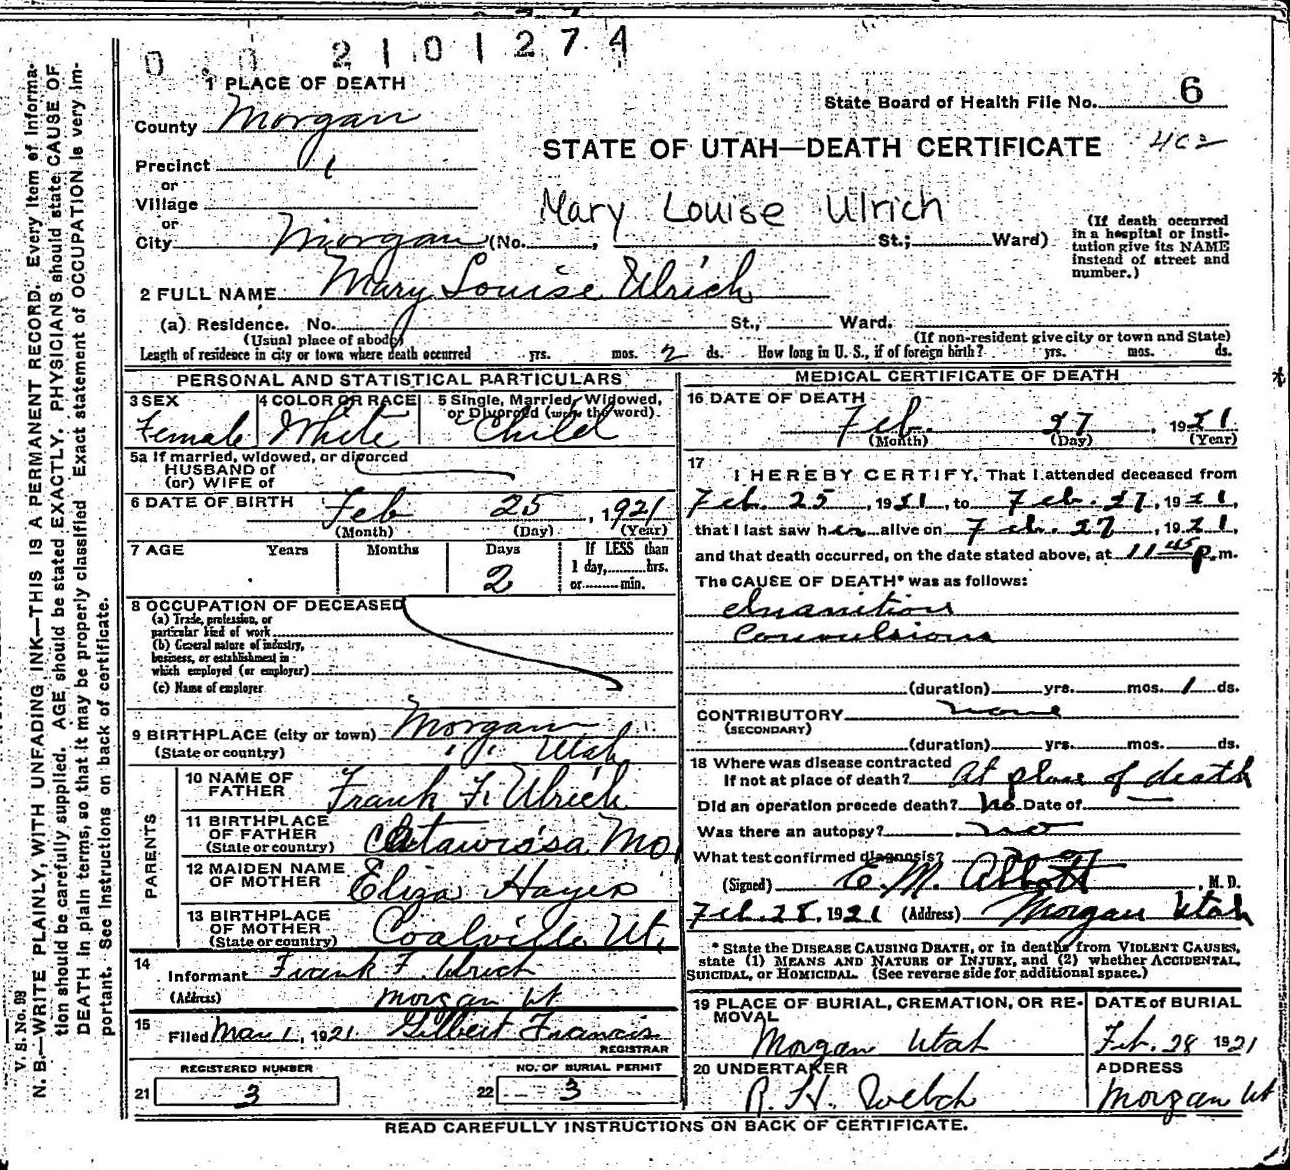 0 0 2 1 0 1 2 7 4
1 PLACE OF DEATH
State Board of Health File No. 6
County Morgan
STATE OF UTAH—DEATH CERTIFICATE 402
Precinct 1
or
Village
Mary Louise Ulrich
or
City Morgan (No. , St.; Ward)
(If death occurred in a hospital or insti-
tution give its NAME
instead of street and
number.)
2 FULL NAME Mary Louise Ulrich
(a) Residence. No. St., Ward.
(Usual place of abode) (If non-resident give city or town and State)
Length of residence in city or town where death occurred yrs. mos. 2 ds. How long in U. S., if of foreign birth? yrs. mos. ds.
PERSONAL AND STATISTICAL PARTICULARS
3 SEX
Female
4 COLOR OR RACE
White
5 Single, Married, Widowed,
or Divorced (write the word).
Child
5a If married, widowed, or divorced
HUSBAND of
(or) WIFE of
6 DATE OF BIRTH Feb 25, 1921
(Month) (Day) (Year)
7 AGE Years Months Days If LESS than
2 1 day, hrs.
or min.
8 OCCUPATION OF DECEASED
(a) Trade, profession, or
particular kind of work
(b) General nature of industry,
business, or establishment in
which employed (or employer)
(c) Name of employer
9 BIRTHPLACE (city or town) Morgan
(State or country) " " Utah
PARENTS
10 NAME OF
FATHER Frank F. Ulrich
11 BIRTHPLACE
OF FATHER
(State or country) Catawissa Mo.
12 MAIDEN NAME
OF MOTHER Eliza Hayes
13 BIRTHPLACE
OF MOTHER
(State or country) Coalville Ut.
14
Informant Frank F. Ulrich
(Address) Morgan Ut
15
Filed Mar 1, 1921 Gilbert Francis
REGISTRAR
REGISTERED NUMBER
21 3
NO. OF BURIAL PERMIT
22 3
MEDICAL CERTIFICATE OF DEATH
16 DATE OF DEATH
Feb. 27, 1921
(Month) (Day) (Year)
17
I HEREBY CERTIFY, That I attended deceased from
Feb. 25, 1921, to Feb. 27, 1921,
that I last saw her alive on Feb. 27, 1921,
and that death occurred, on the date stated above, at 11 45 p.m.
The CAUSE OF DEATH* was as follows:
Inanition
Convulsions
(duration) yrs. mos. 1 ds.
CONTRIBUTORY none
(SECONDARY)
(duration) yrs. mos. ds.
18 Where was disease contracted
If not at place of death? At place of death
Did an operation precede death? No Date of —
Was there an autopsy? no
What test confirmed diagnosis?
(Signed) E. M. Abbott, M. D.
Feb. 28, 1921 (Address) Morgan Utah
* State the DISEASE CAUSING DEATH, or in deaths from VIOLENT CAUSES,
state (1) MEANS AND NATURE OF INJURY, and (2) whether ACCIDENTAL,
SUICIDAL, or HOMICIDAL. (See reverse side for additional space.)
19 PLACE OF BURIAL, CREMATION, OR RE-
MOVAL
Morgan Utah
DATE of BURIAL
Feb. 28 1921
20 UNDERTAKER
R. H. Welch
ADDRESS
Morgan Ut
READ CAREFULLY INSTRUCTIONS ON BACK OF CERTIFICATE.
V. S. No. 99
N. B.—WRITE PLAINLY, WITH UNFADING INK—THIS IS A PERMANENT RECORD. Every item of informa-
tion should be carefully supplied. AGE should be stated EXACTLY. PHYSICIANS should state CAUSE OF
DEATH in plain terms, so that it may be properly classified. Exact statement of OCCUPATION is very im-
portant. See instructions on back of certificate.